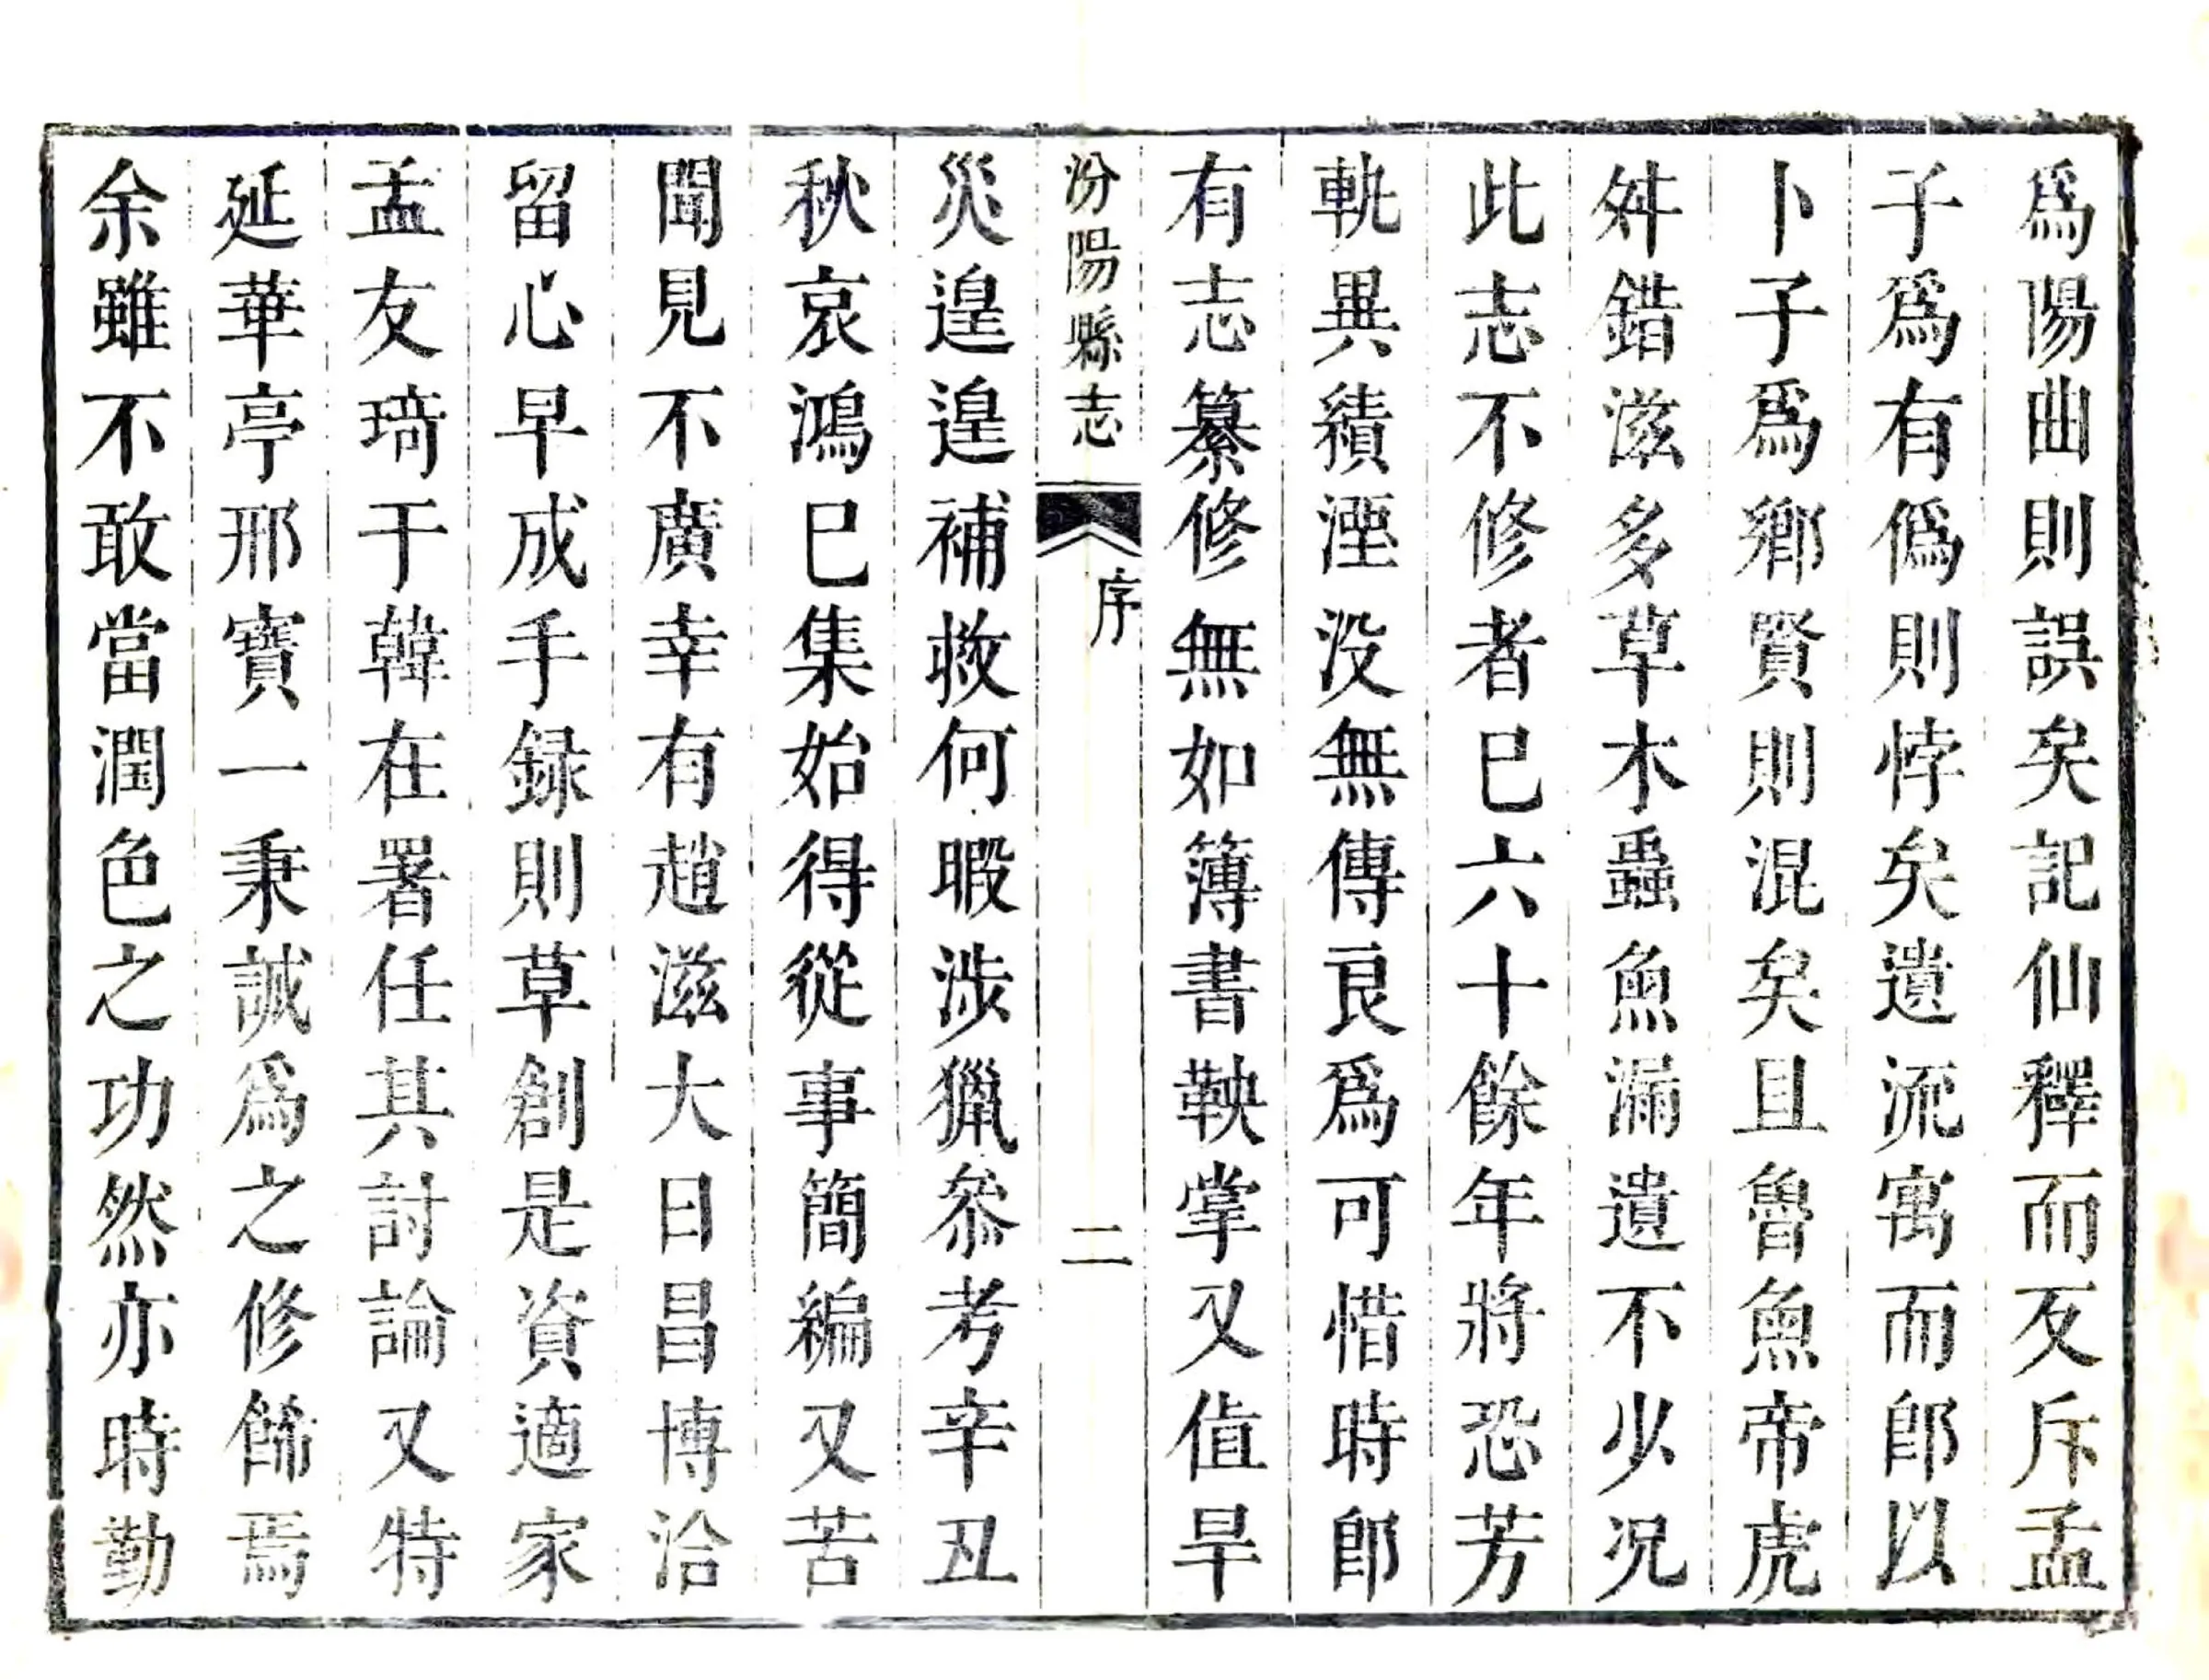 爲陽曲則誤矣記仙釋而反斥孟
子爲有僞則悖矣遺流寓而郎以
卜子爲鄉賢則混矣且魯魚帝虎
舛錯滋多草木蟲魚漏遺不少况
此志不修者已六十餘年將恐芳
軌異績湮没無傳良爲可惜時郎
有志纂修無如簿書鞅掌又値旱
汾陽縣志
序
二
災遑遑補救何暇涉獵叅考辛丑
秋哀鴻已集始得從事簡編又苦
聞見不廣幸有趙滋大日昌博洽
留心早成手録則草創是資適家
孟友琦于韓在署任其討論又特
延華亭邢寶一秉誠爲之修餙焉
余雖不敢當潤色之功然亦時勤